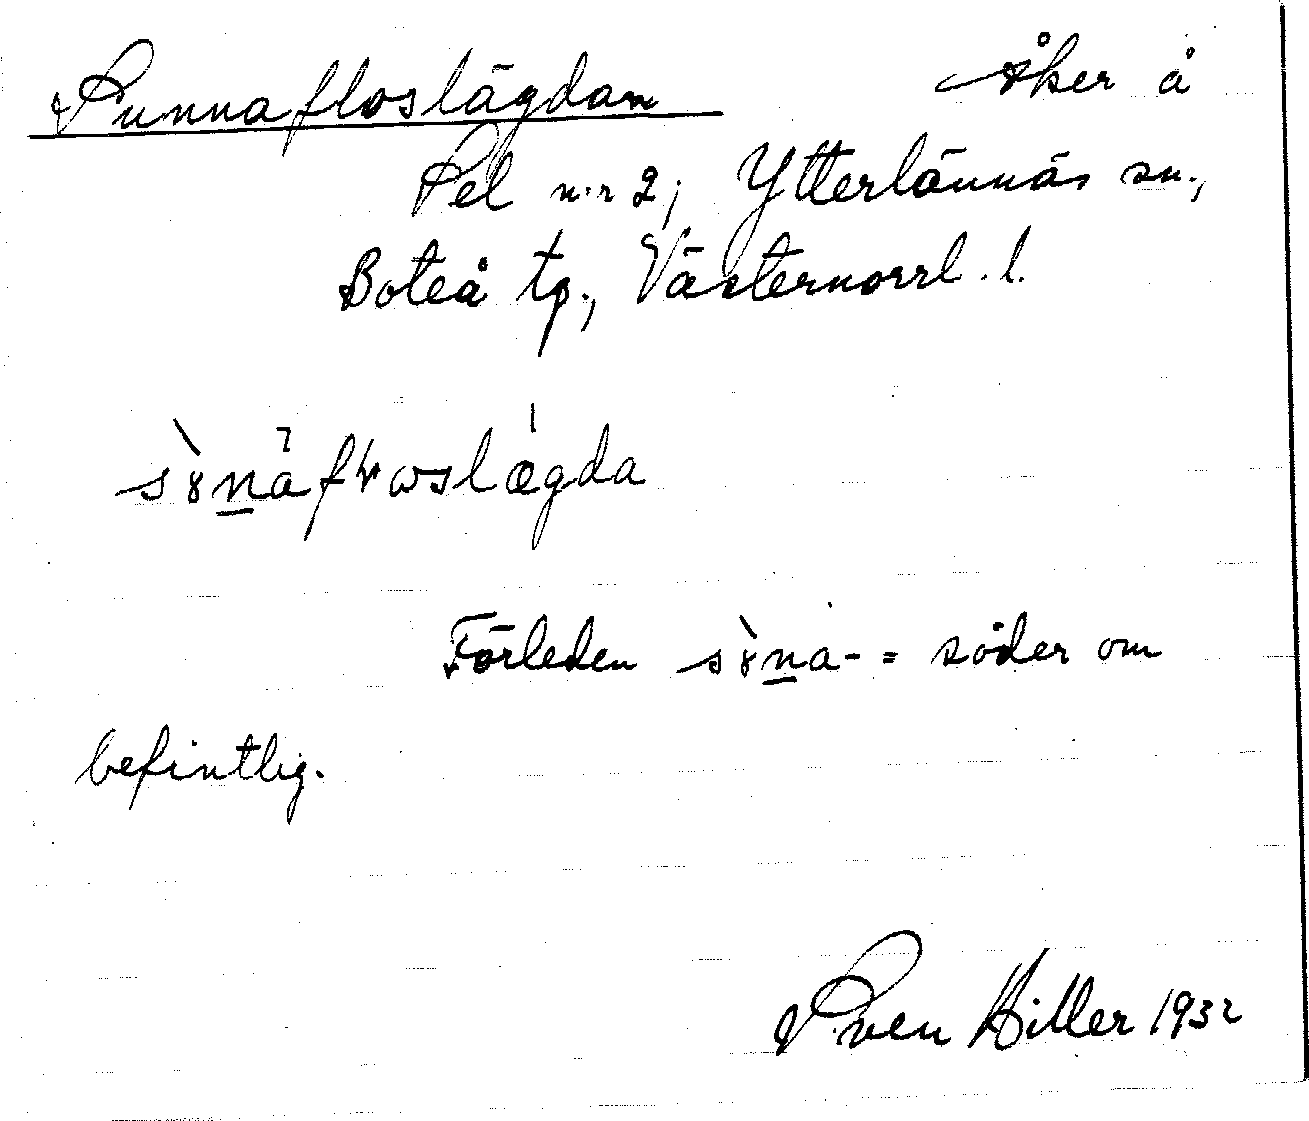 Sunnafloslägdan Åker å
Pel n:r 2, Ytterlännäs sn.,
Boteå tg., Västernorrl. l.
Förleden = söder om
befintlig.
Sven Hiller 1932